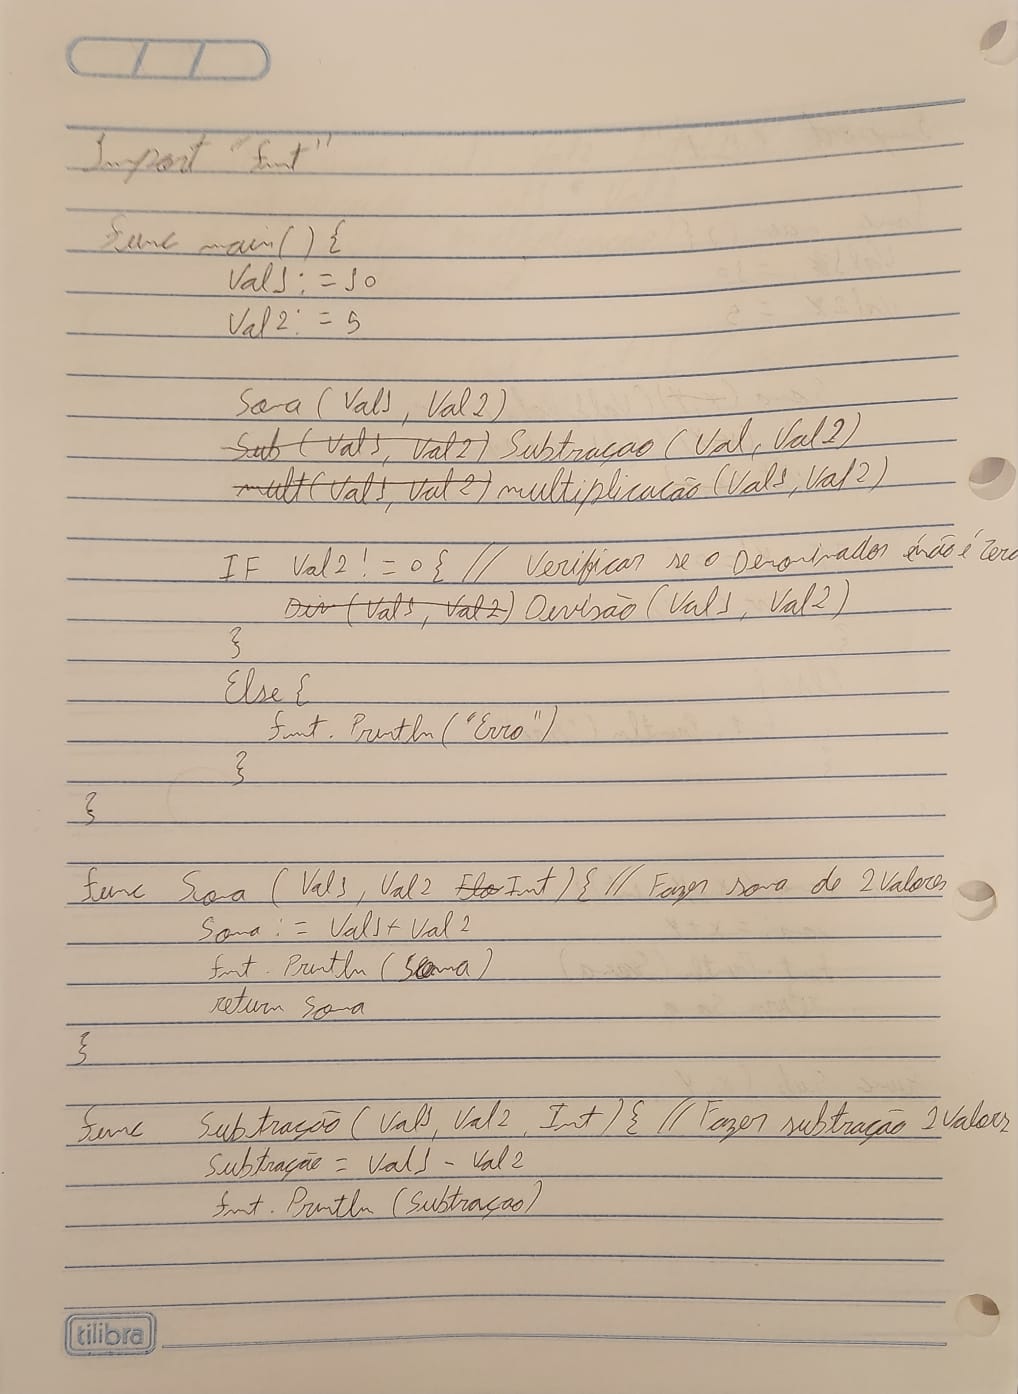 Import "fmt"
func main() {
Val1 := 10
Val2 := 5
Soma (Val1, Val2)
Sub (Val1, Val2) Subtraçao (Val, Val2)
mult (Val1, Val2) multiplicacão (Val1, Val2)
IF Val2 != 0 { // Verificar se o Denominador não é Zero
Div (Val1, Val2) Devisão (Val1, Val2)
}
Else {
fmt. Println ("Erro")
}
}
func Soma (Val1, Val2 Flo Int) { // Fazer soma de 2 Valores
Soma := Val1 + Val2
fmt. Println (Soma)
return Soma
}
func Subtração (Val1, Val2, Int) { // Fazer subtração 2 Valores
Subtração = Val1 - Val2
fmt. Println (Subtraçao)
tilibra